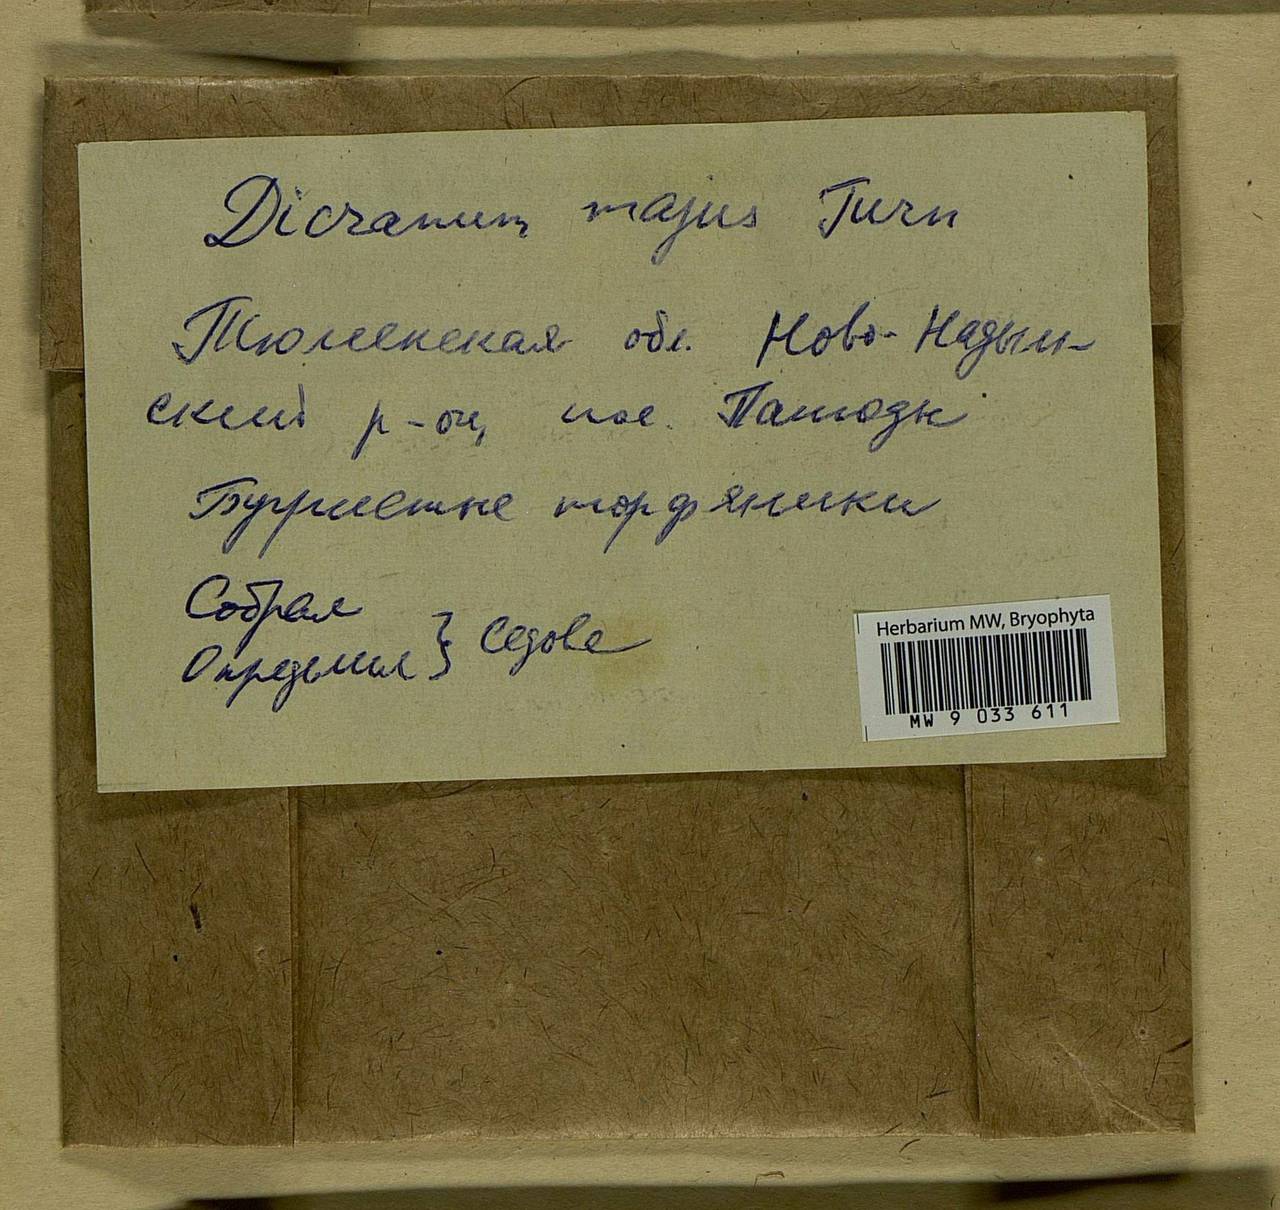 Dicranum majus Turn
Тюменская обл. Ново-Надым-
ский р-он, пос. Пангоды
Бугристые торфяники
Собрал
Определил } Седова
Herbarium MW, Bryophyta
MW 9 033 611